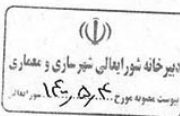 دبیرخانه شورایعالی شهرسازی و معماری
پیوست مصوبه مورخ ۱۴۰۰,۵,۴ شورایعالی